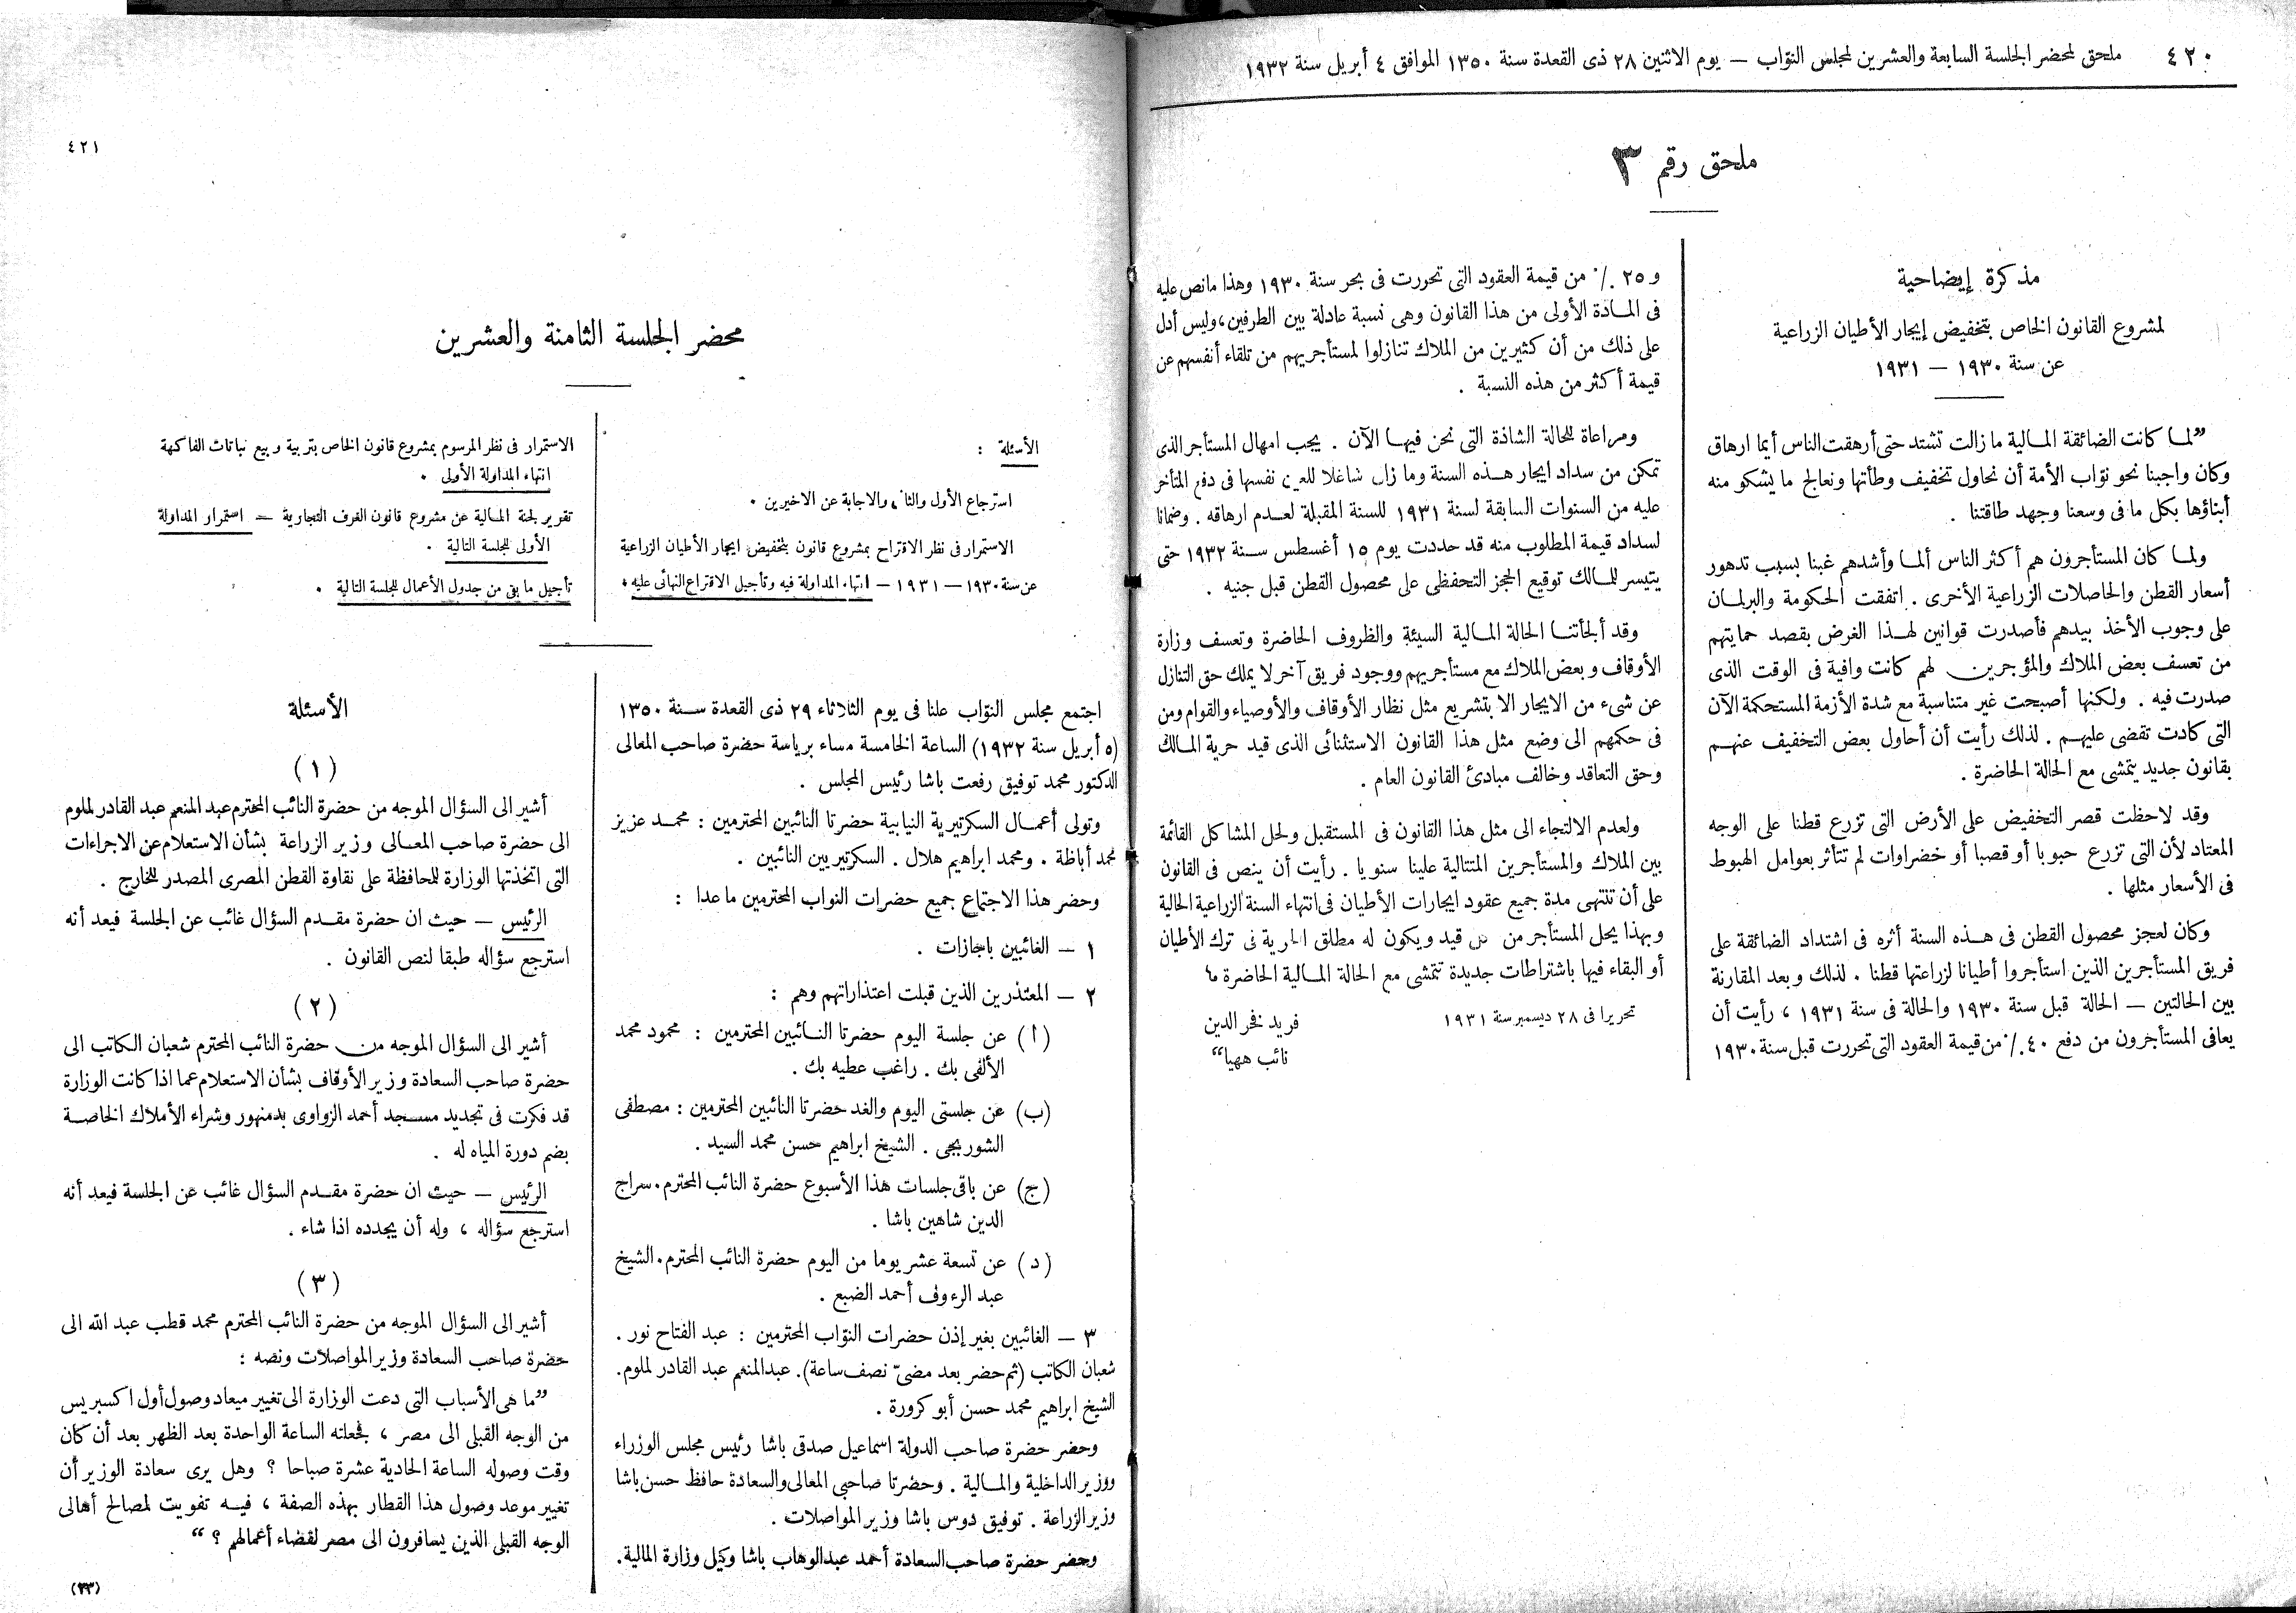 ٤٢٠ ملحق لمحضر الجلسة السابعة والعشرين لمجلس النوّاب — يوم الاثنين ٢٨ ذى القعدة سنة ١٣٥٠ الموافق ٤ أبريل سنة ١٩٣٢
ملحق رقم ٣
مذكرة إيضاحية
لمشروع القانون الخاص بتخفيض إيجار الأطيان الزراعية
عن سنة ١٩٣٠ — ١٩٣١
”لما كانت الضائقة المالية ما زالت تشتد حتى أرهقت الناس أيما ارهاق
وكان واجبنا نحو نوّاب الأمة أن نحاول تخفيف وطأتها ونعالج ما يشكو منه
أبناؤها بكل ما فى وسعنا وجهد طاقتنا .
ولما كان المستأجرون هم أكثر الناس ألما وأشدهم غبنا بسبب تدهور
أسعار القطن والحاصلات الزراعية الأخرى . اتفقت الحكومة والبرلمان
على وجوب الأخذ بيدهم فأصدرت قوانين لهذا الغرض بقصد حمايتهم
من تعسف بعض الملاك والمؤجرين لهم كانت وافية فى الوقت الذى
صدرت فيه . ولكنها أصبحت غير متناسبة مع شدة الأزمة المستحكمة الآن
التى كادت تقضى عليهم . لذلك رأيت أن أحاول بعض التخفيف عنهم
بقانون جديد يتمشى مع الحالة الحاضرة .
وقد لاحظت قصر التخفيض على الأرض التى تزرع قطنا على الوجه
المعتاد لأن التى تزرع حبوبا أو قصبا أو خضراوات لم تتأثر بعوامل الهبوط
فى الأسعار مثلها .
وكان لعجز محصول القطن فى هذه السنة أثره فى اشتداد الضائقة على
فريق المستأجرين الذين استأجروا أطيانا لزراعتها قطنا . لذلك وبعد المقارنة
بين الحالتين — الحالة قبل سنة ١٩٣٠ والحالة فى سنة ١٩٣١ ، رأيت أن
يعافى المستأجرون من دفع ٤٠ ٪ من قيمة العقود التى تحررت قبل سنة ١٩٣٠
و ٢٥ ٪ من قيمة العقود التى تحررت فى بحر سنة ١٩٣٠ وهذا ما نص عليه
فى المادة الأولى من هذا القانون وهى نسبة عادلة بين الطرفين، وليس أدل
على ذلك من أن كثيرين من الملاك تنازلوا لمستأجريهم من تلقاء أنفسهم عن
قيمة أكثر من هذه النسبة .
ومراعاة للحالة الشاذة التى نحن فيها الآن . يجب امهال المستأجر الذى
تمكن من سداد ايجار هذه السنة وما زال شاغلا للعين نفسها فى دفع المتأخر
عليه من السنوات السابقة لسنة ١٩٣١ للسنة المقبلة لعدم ارهاقه . وضمانا
لسداد قيمة المطلوب منه قد حددت يوم ١٥ أغسطس سنة ١٩٣٢ حتى
يتيسر للمالك توقيع الحجز التحفظى على محصول القطن قبل جنيه .
وقد أبلأتنا الحالة المالية السيئة والظروف الحاضرة وتعسف وزارة
الأوقاف وبعض الملاك مع مستأجريهم ووجود فريق آخر لا يملك حق التنازل
عن شىء من الايجار الا بتشريع مثل نظار الأوقاف والأوصياء والقوام ومن
فى حكمهم الى وضع مثل هذا القانون الاستثنائى الذى قيد حرية المالك
وحق التعاقد وخالف مبادئ القانون العام .
ولعدم الالتجاء الى مثل هذا القانون فى المستقبل ولحل المشاكل القائمة
بين الملاك والمستأجرين المتتالية علينا سنويا . رأيت أن ينص فى القانون
على أن تنتهى مدة جميع عقود ايجارات الأطيان فى انتهاء السنة الزراعية الحالية
وبهذا يحل المستأجر من كل قيد ويكون له مطلق الحرية فى ترك الأطيان
أو البقاء فيها باشتراطات جديدة تتمشى مع الحالة المالية الحاضرة ما
تحريرا فى ٢٨ ديسمبر سنة ١٩٣١ فريد فخر الدين
نائب ههيا“
٤٢١
محضر الجلسة الثامنة والعشرين
الأسئلة :
استرجاع الأول والثا ، والاجابة عن الاخيرين .
الاستمرار فى نظر الاقتراح بمشروع قانون بتخفيض ايجار الأطيان الزراعية
عن سنة ١٩٣٠ — ١٩٣١ — انتهاء المداولة فيه وتأجيل الاقتراع النهائى عليه .
الاستمرار فى نظر المرسوم بمشروع قانون الخاص بتربية وبيع نباتات الفاكهة
انتهاء المداولة الأولى .
تقرير لجنة المالية عن مشروع قانون الغرف التجارية — استمرار المداولة
الأولى للجلسة التالية .
تأجيل ما بقى من جدول الأعمال للجلسة التالية .
اجتمع مجلس النوّاب علنا فى يوم الثلاثاء ٢٩ ذى القعدة سنة ١٣٥٠
(٥ أبريل سنة ١٩٣٢) الساعة الخامسة مساء برياسة حضرة صاحب المعالى
الدكتور محمد توفيق رفعت باشا رئيس المجلس .
وتولى أعمال السكرتيرية النيابية حضرتا النائبين المحترمين : محمد عزيز
محمد أباظة . ومحمد ابراهيم هلال . السكرتيريين النائبين .
وحضر هذا الاجتماع جميع حضرات النواب المحترمين ما عدا :
١ — الغائبين باجازات .
٢ — المعتذرين الذين قبلت اعتذاراتهم وهم :
(ا) عن جلسة اليوم حضرتا النائبين المحترمين : محمود محمد
الألفى بك . راغب عطيه بك .
(ب) عن جلستى اليوم والغد حضرتا النائبين المحترمين : مصطفى
الشوربجى . الشيخ ابراهيم حسن محمد السيد .
(ج) عن باقى جلسات هذا الأسبوع حضرة النائب المحترم . سراج
الدين شاهين باشا .
(د) عن تسعة عشر يوما من اليوم حضرة النائب المحترم . الشيخ
عبد الرءوف أحمد الضبع .
٣ — الغائبين بغير إذن حضرات النوّاب المحترمين : عبد الفتاح نور .
شعبان الكاتب (ثم حضر بعد مضىّ نصف ساعة). عبد المنعم عبد القادر لملوم.
الشيخ ابراهيم محمد حسن أبو كرورة .
وحضر حضرة صاحب الدولة اسماعيل صدقى باشا رئيس مجلس الوزراء
ووزير الداخلية والمالية . وحضرتا صاحبى المعالى والسعادة حافظ حسن باشا
وزير الزراعة . توفيق دوس باشا وزير المواصلات .
وحضر حضرة صاحب السعادة أحمد عبد الوهاب باشا وكيل وزارة المالية.
الأسئلة
(١)
أشير الى السؤال الموجه من حضرة النائب المحترم عبد المنعم عبد القادر لملوم
الى حضرة صاحب المعالى وزير الزراعة بشأن الاستعلام عن الاجراءات
التى اتخذتها الوزارة للمحافظة على نقاوة القطن المصرى المصدر للخارج .
الرئيس — حيث ان حضرة مقدم السؤال غائب عن الجلسة فيعد أنه
استرجع سؤاله طبقا لنص القانون .
(٢)
أشير الى السؤال الموجه من حضرة النائب المحترم شعبان الكاتب الى
حضرة صاحب السعادة وزير الأوقاف بشأن الاستعلام عما اذا كانت الوزارة
قد فكرت فى تجديد مسجد أحمد الزواوى بدمنهور وشراء الأملاك الخاصة
بضم دورة المياه له .
الرئيس — حيث ان حضرة مقدم السؤال غائب عن الجلسة فيعد أنه
استرجع سؤاله ، وله أن يجدده اذا شاء .
(٣)
أشير الى السؤال الموجه من حضرة النائب المحترم محمد قطب عبد الله الى
حضرة صاحب السعادة وزير المواصلات ونصه :
”ما هى الأسباب التى دعت الوزارة الى تغيير ميعاد وصول أول اكسبريس
من الوجه القبلى الى مصر ، فجعلته الساعة الواحدة بعد الظهر بعد أن كان
وقت وصوله الساعة الحادية عشرة صباحا ؟ وهل يرى سعادة الوزير أن
تغيير موعد وصول هذا القطار بهذه الصفة ، فيه تفويت لمصالح أهالى
الوجه القبلى الذين يسافرون الى مصر لقضاء أعمالهم ؟ “
(٣٣)